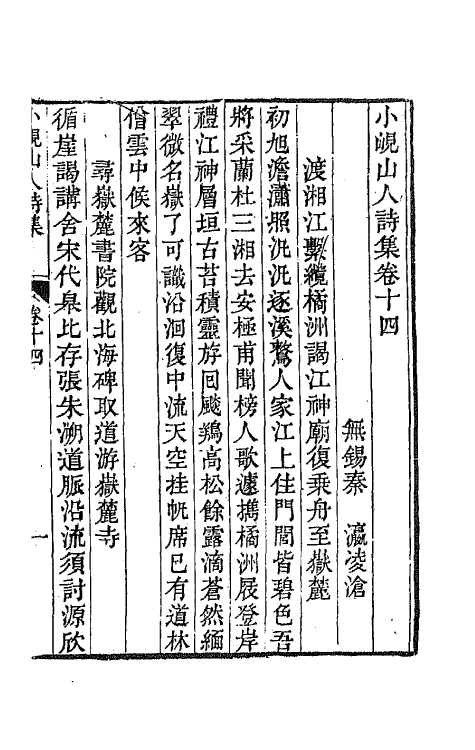 小峴山人詩集卷十四
無錫秦 瀛凌滄
渡湘江繫纜橘洲謁江神廟復乘舟至嶽麓
初旭澹瀟照沇沇逐溪鶩人家江上住門閭皆碧色吾
將采蘭杜三湘去安極甫聞榜人歌遽擕橘洲屐登岸
禮江神層垣古苔積靈斿回颷鶏高松餘露滴蒼然緬
翠微名嶽了可識沿洄復中流天空挂帆席已有道林
僧雲中候來客
尋嶽麓書院觀北海碑取道游嶽麓寺
循崖謁講舍宋代臯比存張朱溯道脈沿流須討源欣
小峴山人詩集 卷十四 一